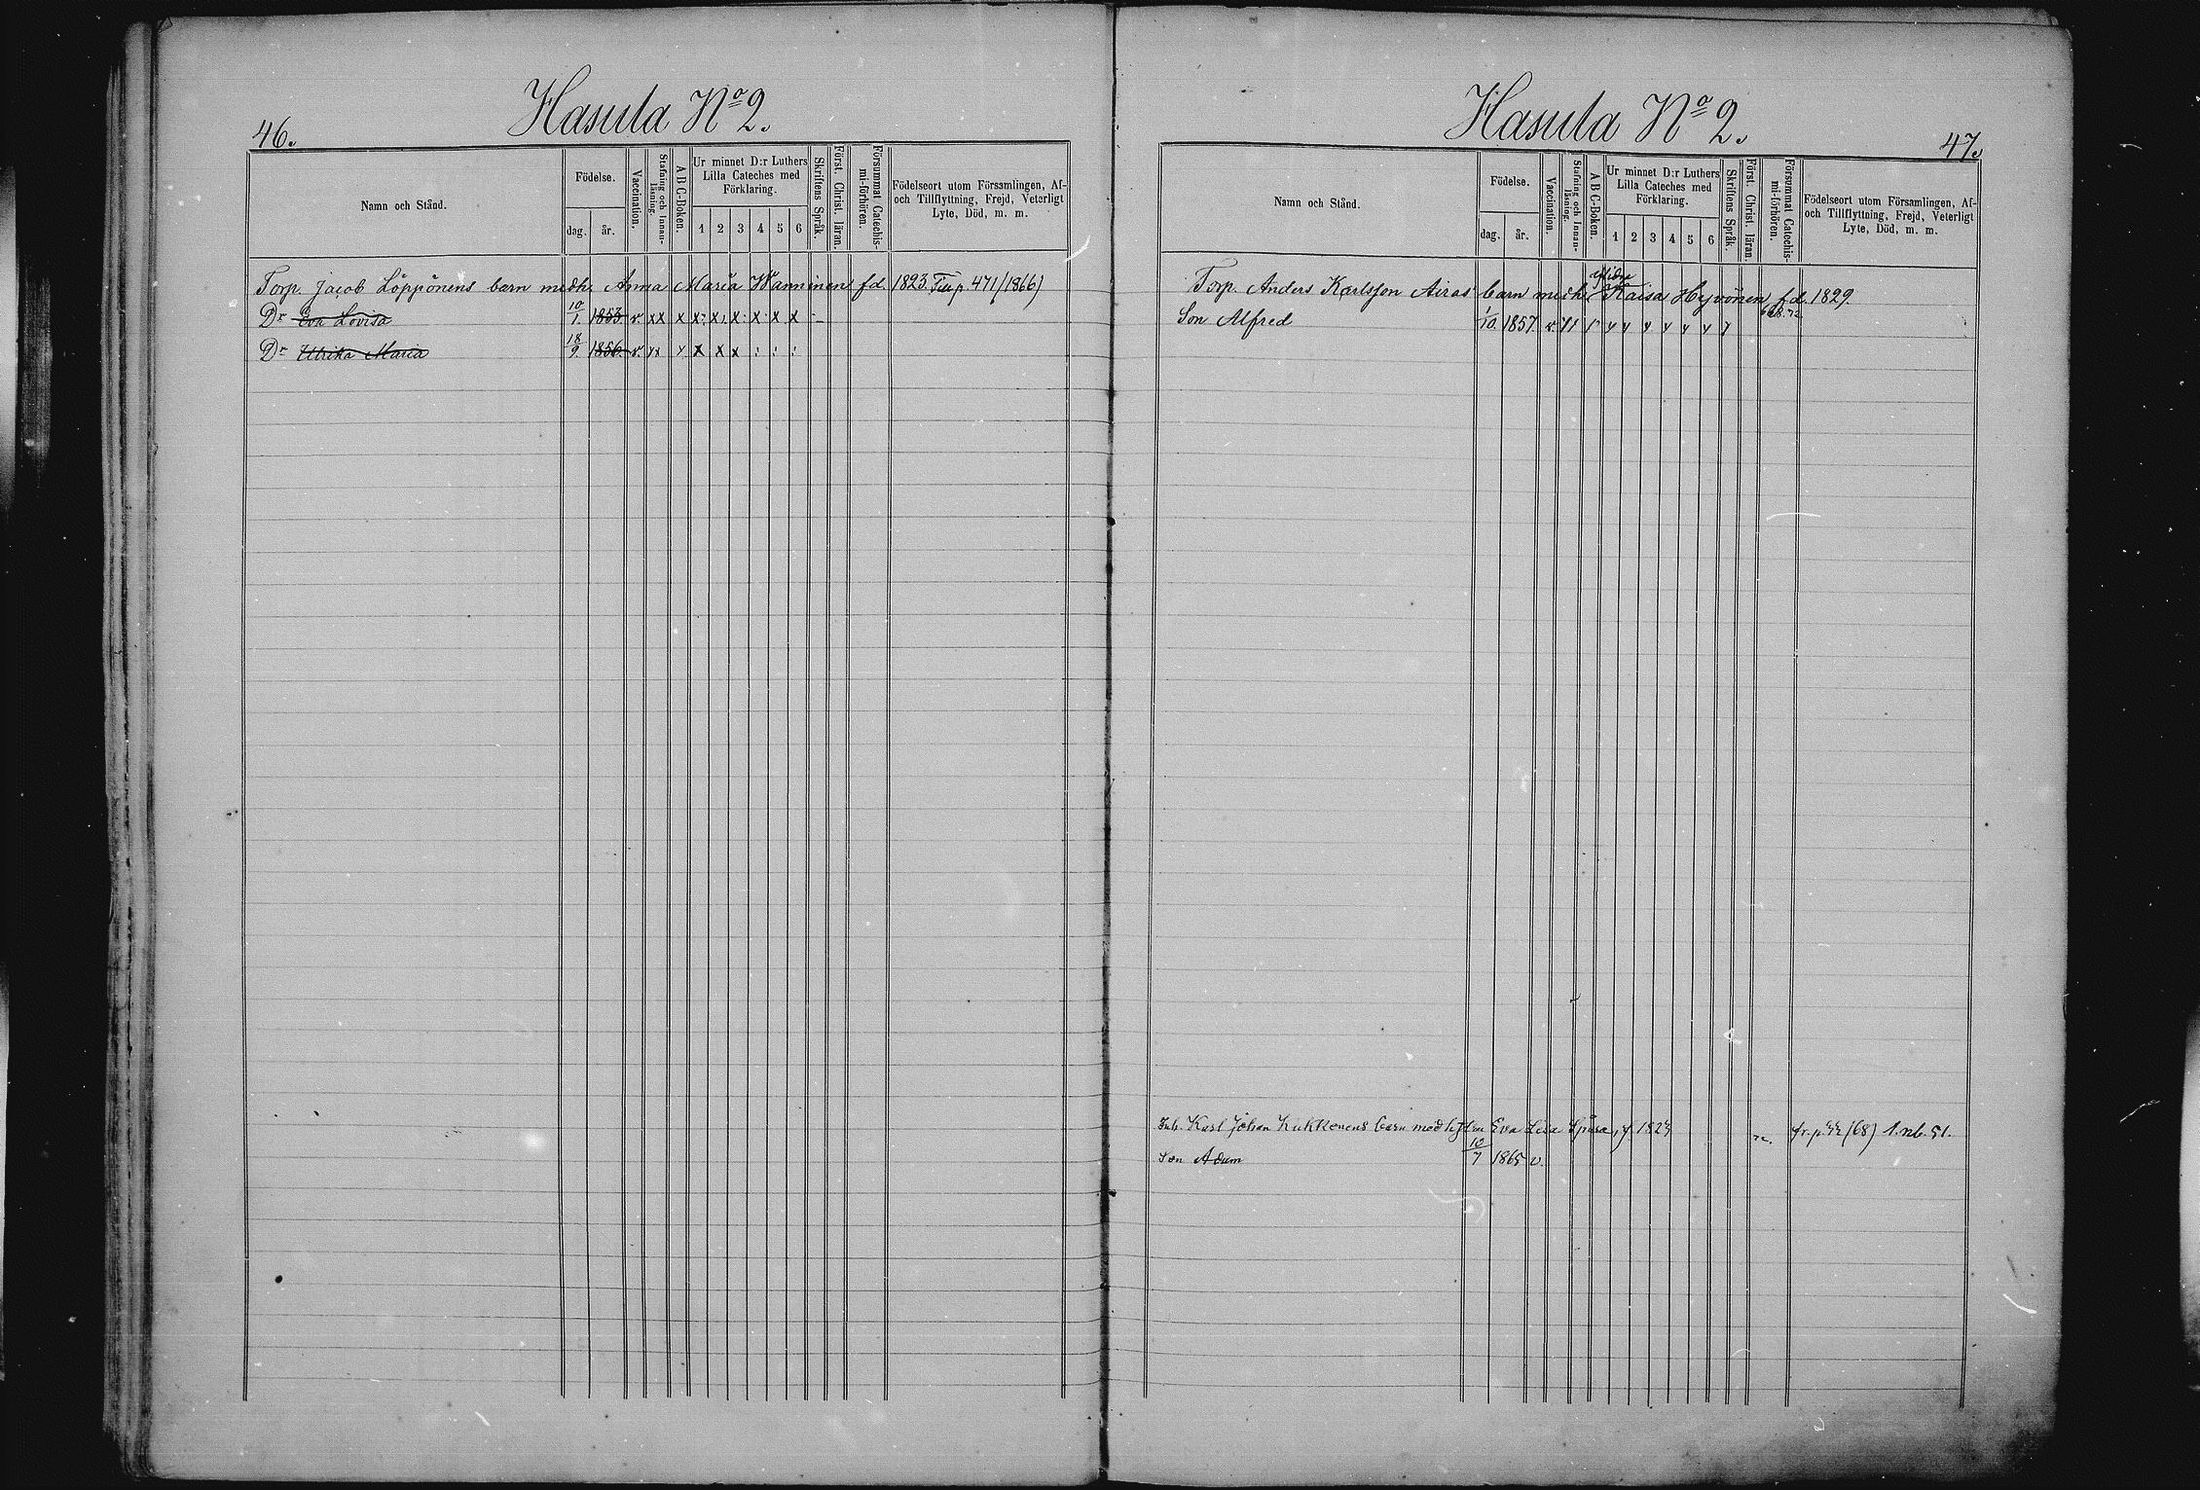 46.
Hasula No 2.
Namn och Stånd.
Födelse.
dag.
år.
Vaccination.
Stafning och Innanläsning.
A B C-Boken.
Ur minnet D:r Luthers
Lilla Cateches med
Förklaring.
1 2 3 4 5 6
Skriftens Språk.
Först. Christ. läran.
Försummat Catechismi-förhören.
Födelseort utom Församlingen, Af-
och Tillflyttning, Frejd, Veterligt
Lyte, Död, m. m.
Torp. Jacob Löppönens barn m.dh. Anna Maria Wanninen fd. 1823. p. 471/1866)
Dr Eva Lovisa 10/1. 1853. v. xx x x x x x x x –
Dr Ulrika Maria 18/9 1856 v. xx x x x x : : :
Hasula No 2.
47.
Namn och Stånd.
Födelse.
dag.
år.
Vaccination.
Stafning och Innanläsning.
A B C-Boken.
Ur minnet D:r Luthers
Lilla Cateches med
Förklaring.
1 2 3 4 5 6
Skriftens Språk.
Först. Christ. läran.
Försummat Catechismi-förhören.
Födelseort utom Församlingen, Af-
och Tillflyttning, Frejd, Veterligt
Lyte, Död, m. m.
Torp. Anders Karlsson Airas barn m.dh. Kaisa Hyvönen f.d. 1829
Son Alfred 1/10. 1857. v.
Inh. Karl Johan Kukkonens barn med Eva Lisa f. 1823 fr. p. (68) l. nb. 51.
Son Adam 10/7 1865 v.